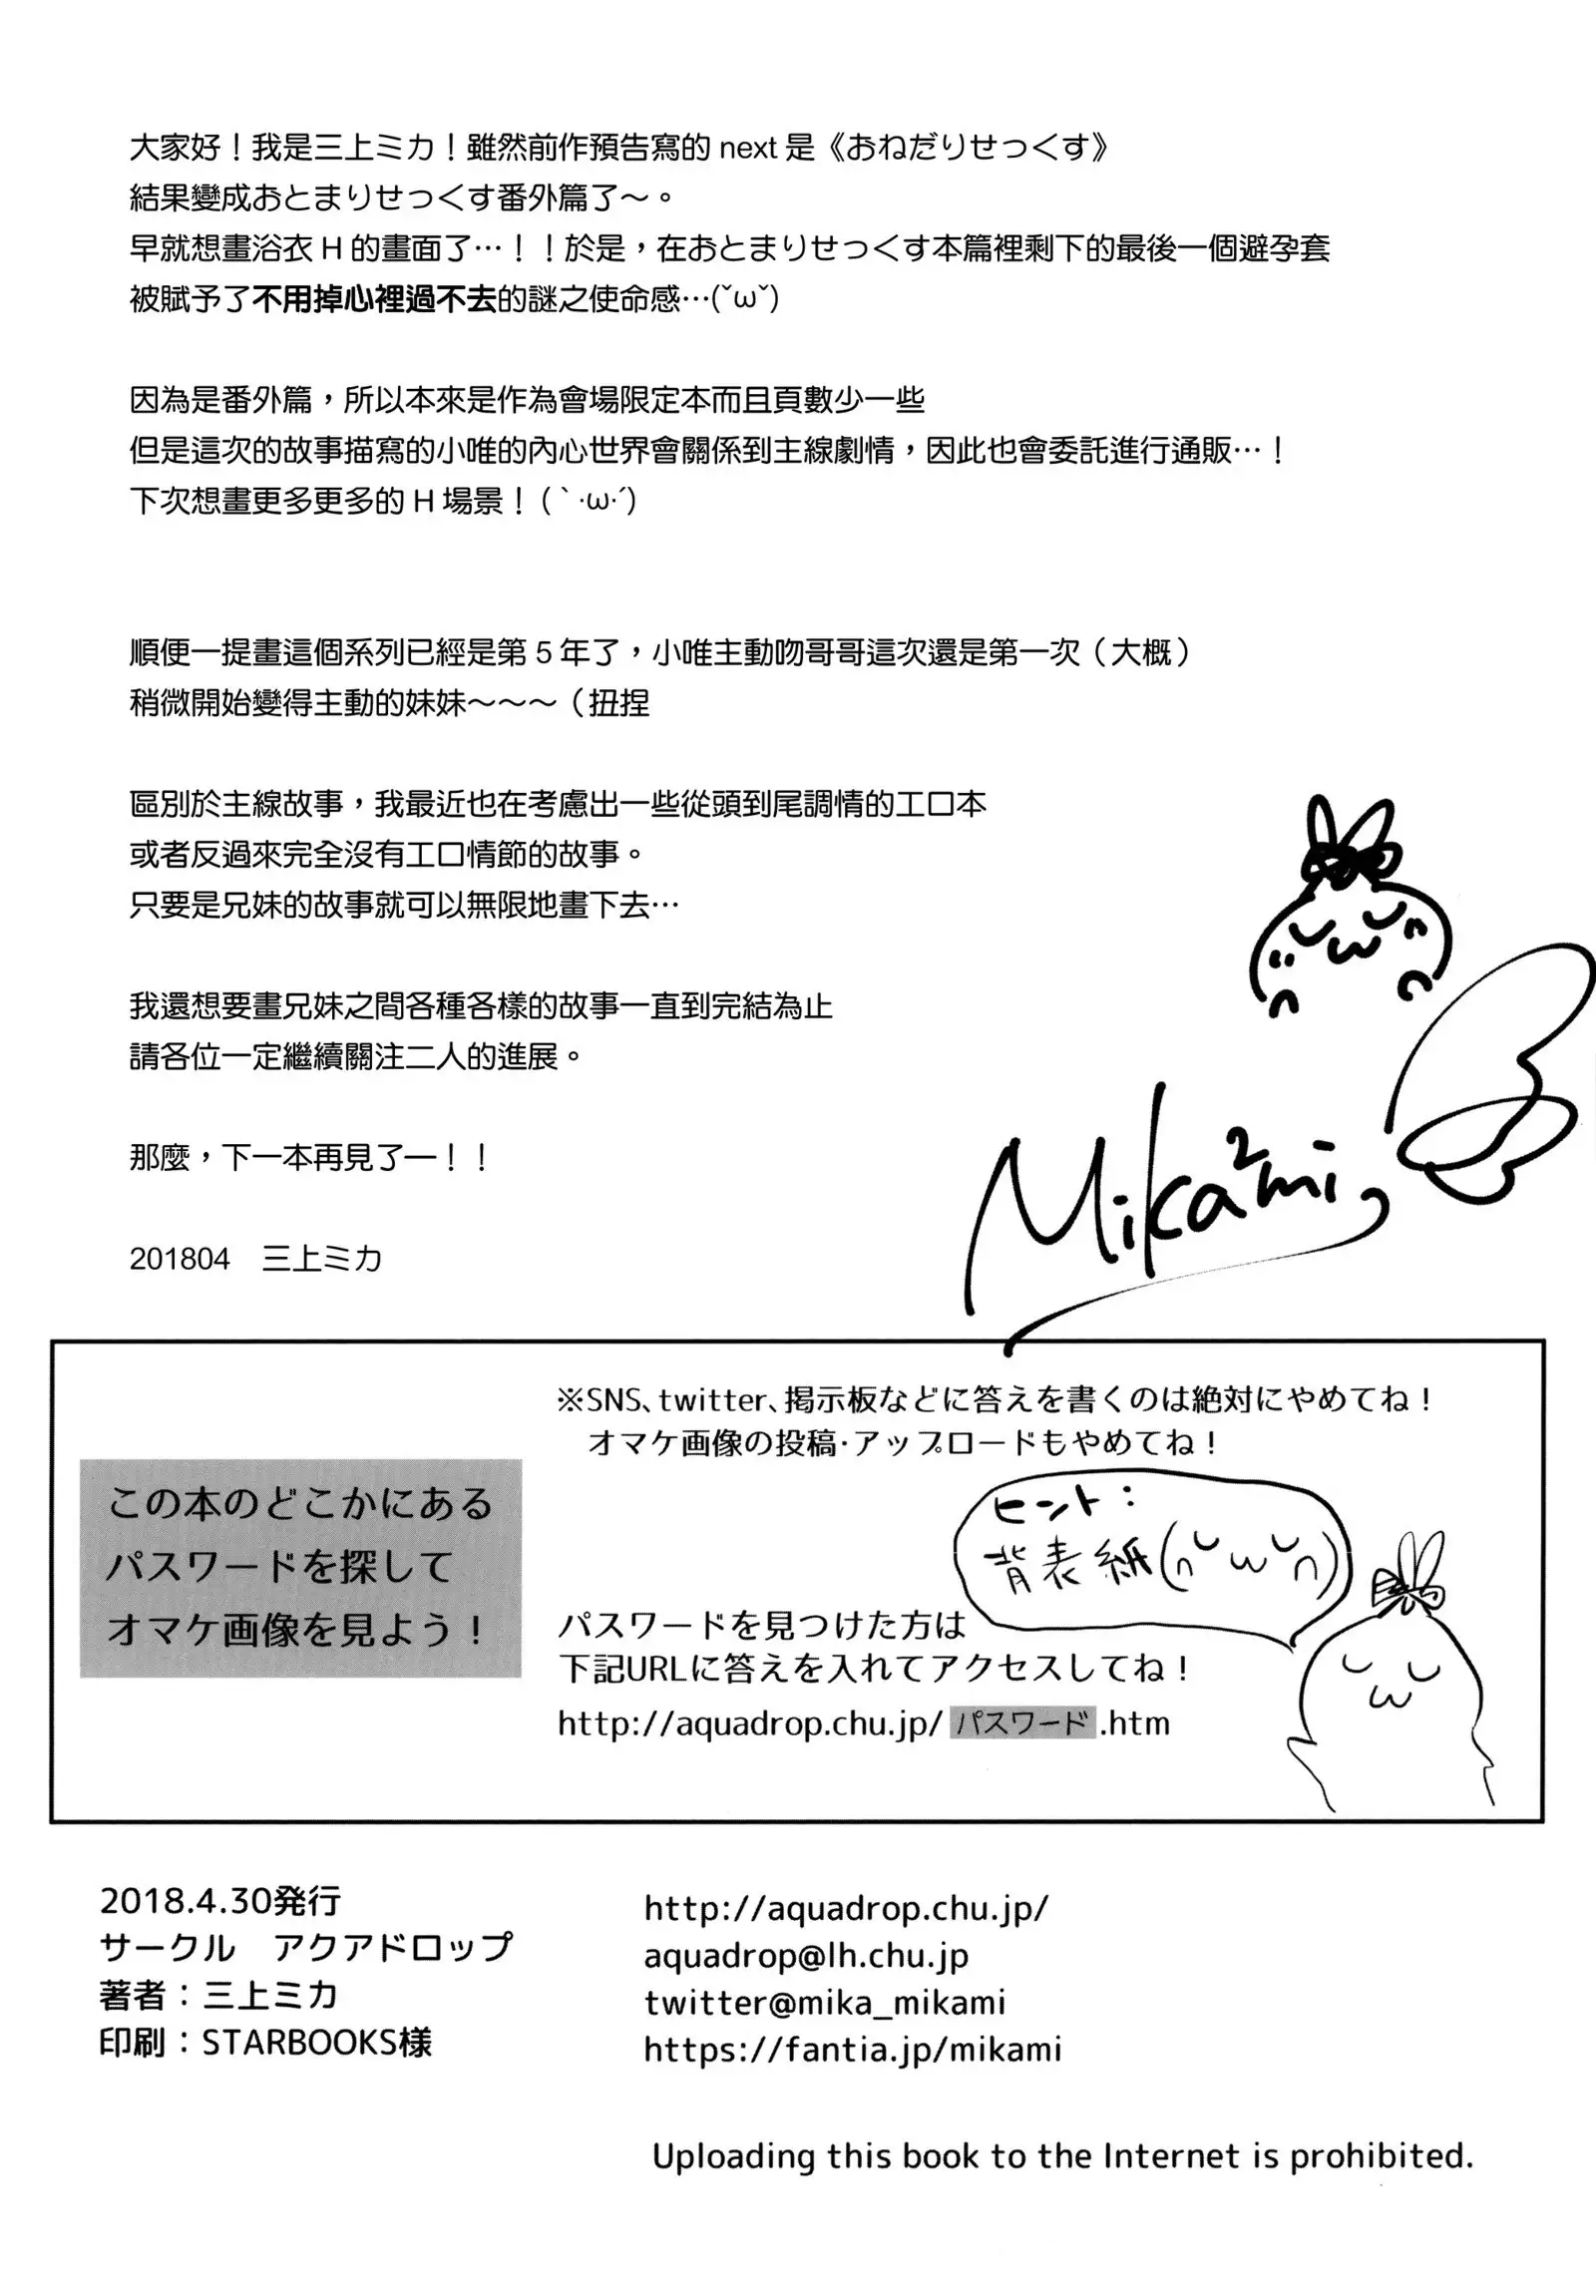 大家好！我是三上ミカ！雖然前作預告寫的 next 是《おねだりせっくす》
結果變成おとまりせっくす番外篇了～。
早就想畫浴衣 H 的畫面了…！！於是，在おとまりせっくす本篇裡剩下的最後一個避孕套
被賦予了不用掉心裡過不去的謎之使命感…(˘ω˘)
因為是番外篇，所以本來是作為會場限定本而且頁數少一些
但是這次的故事描寫的小唯的內心世界會關係到主線劇情，因此也會委託進行通販…！
下次想畫更多更多的 H 場景！(｀·ω·´)
順便一提畫這個系列已經是第 5 年了，小唯主動吻哥哥這次還是第一次（大概）
稍微開始變得主動的妹妹～～～（扭捏
區別於主線故事，我最近也在考慮出一些從頭到尾調情的工口本
或者反過來完全沒有工口情節的故事。
只要是兄妹的故事就可以無限地畫下去…
我還想要畫兄妹之間各種各樣的故事一直到完結為止
請各位一定繼續關注二人的進展。
那麼，下一本再見了—！！
Mika²mi
201804　三上ミカ
※SNS、twitter、掲示板などに答えを書くのは絶対にやめてね！
オマケ画像の投稿・アップロードもやめてね！
この本のどこかにある
パスワードを探して
オマケ画像を見よう！
ヒント：
背表紙(∩˘ω˘∩)
パスワードを見つけた方は
下記URLに答えを入れてアクセスしてね！
http://aquadrop.chu.jp/パスワード.htm
2018.4.30発行
サークル　アクアドロップ
著者：三上ミカ
印刷：STARBOOKS様
http://aquadrop.chu.jp/
aquadrop@lh.chu.jp
twitter@mika_mikami
https://fantia.jp/mikami
Uploading this book to the Internet is prohibited.